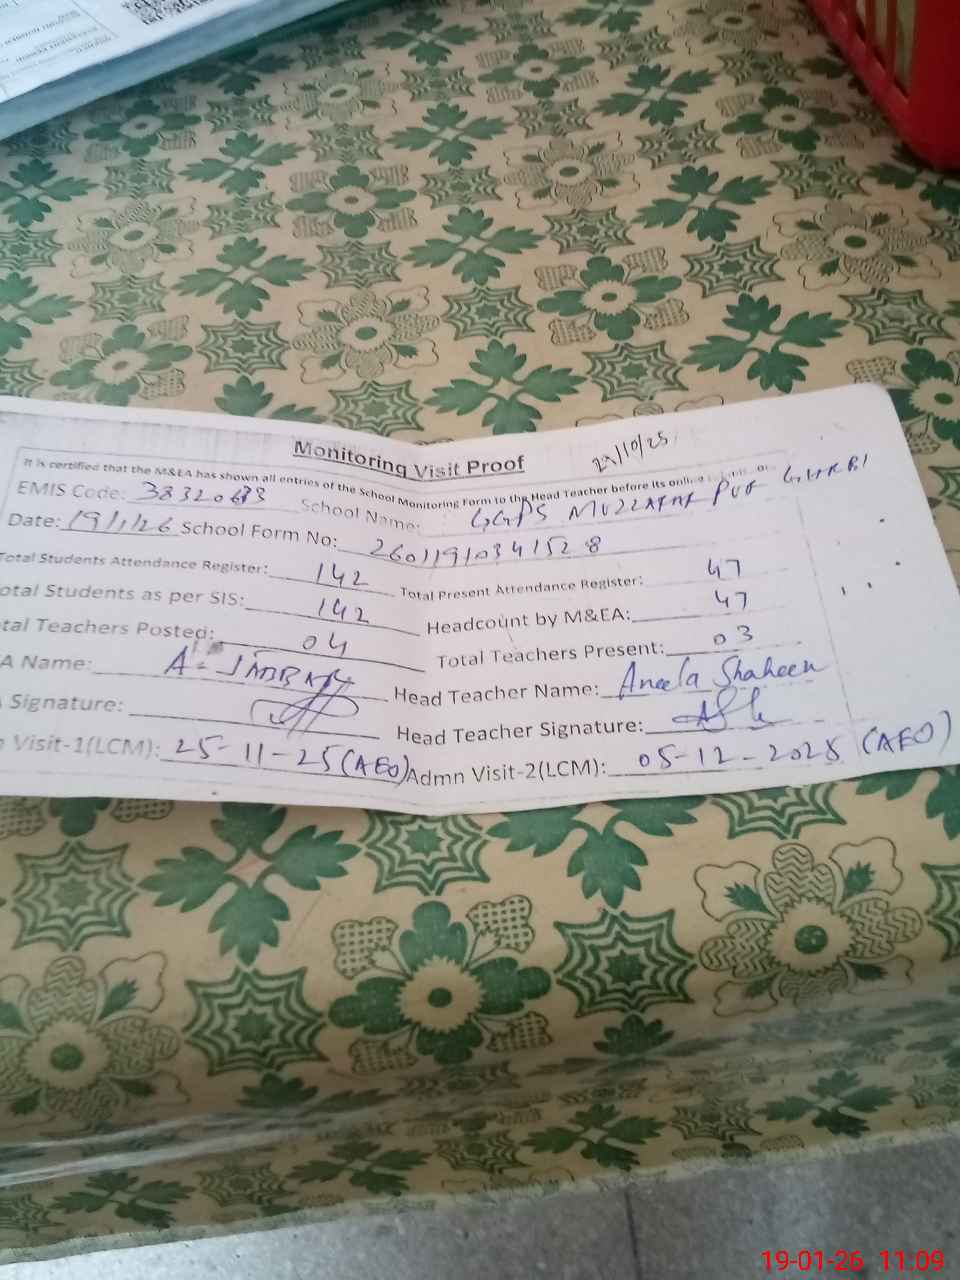 Monitoring Visit Proof
It is certified that the M&EA has shown all entries of the School Monitoring Form to the Head Teacher before its
EMIS Code: School Name: GGPS
Date: 19/1/26 School Form No: 26011910341528
Total Students Attendance Register: 142 Total Present Attendance Register: 47
otal Students as per SIS: 142 Headcount by M&EA: 47
tal Teachers Posted: 04 Total Teachers Present: 03
A Name: Head Teacher Name: Aneela Shaheen
Signature: Head Teacher Signature:
Visit-1(LCM): 25-11-25 (AEO) Admn Visit-2(LCM): 05-12-2025 (AEO)
19-01-26 11:09